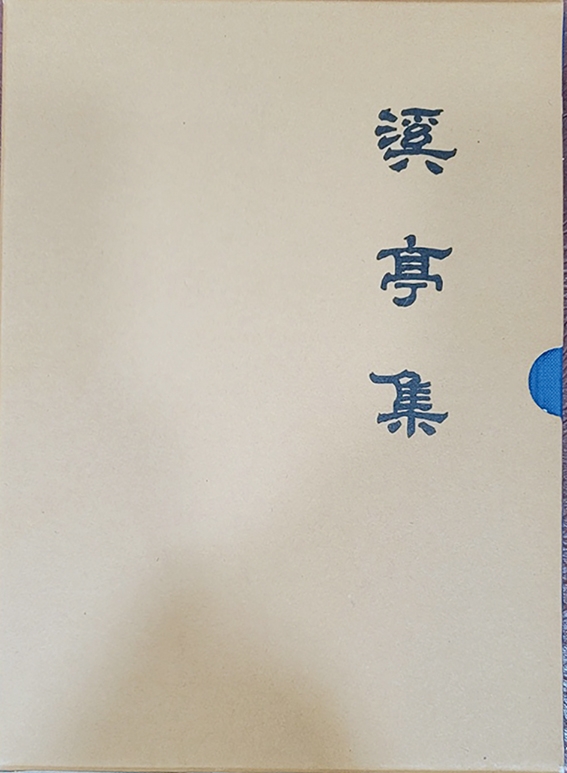 溪亭集